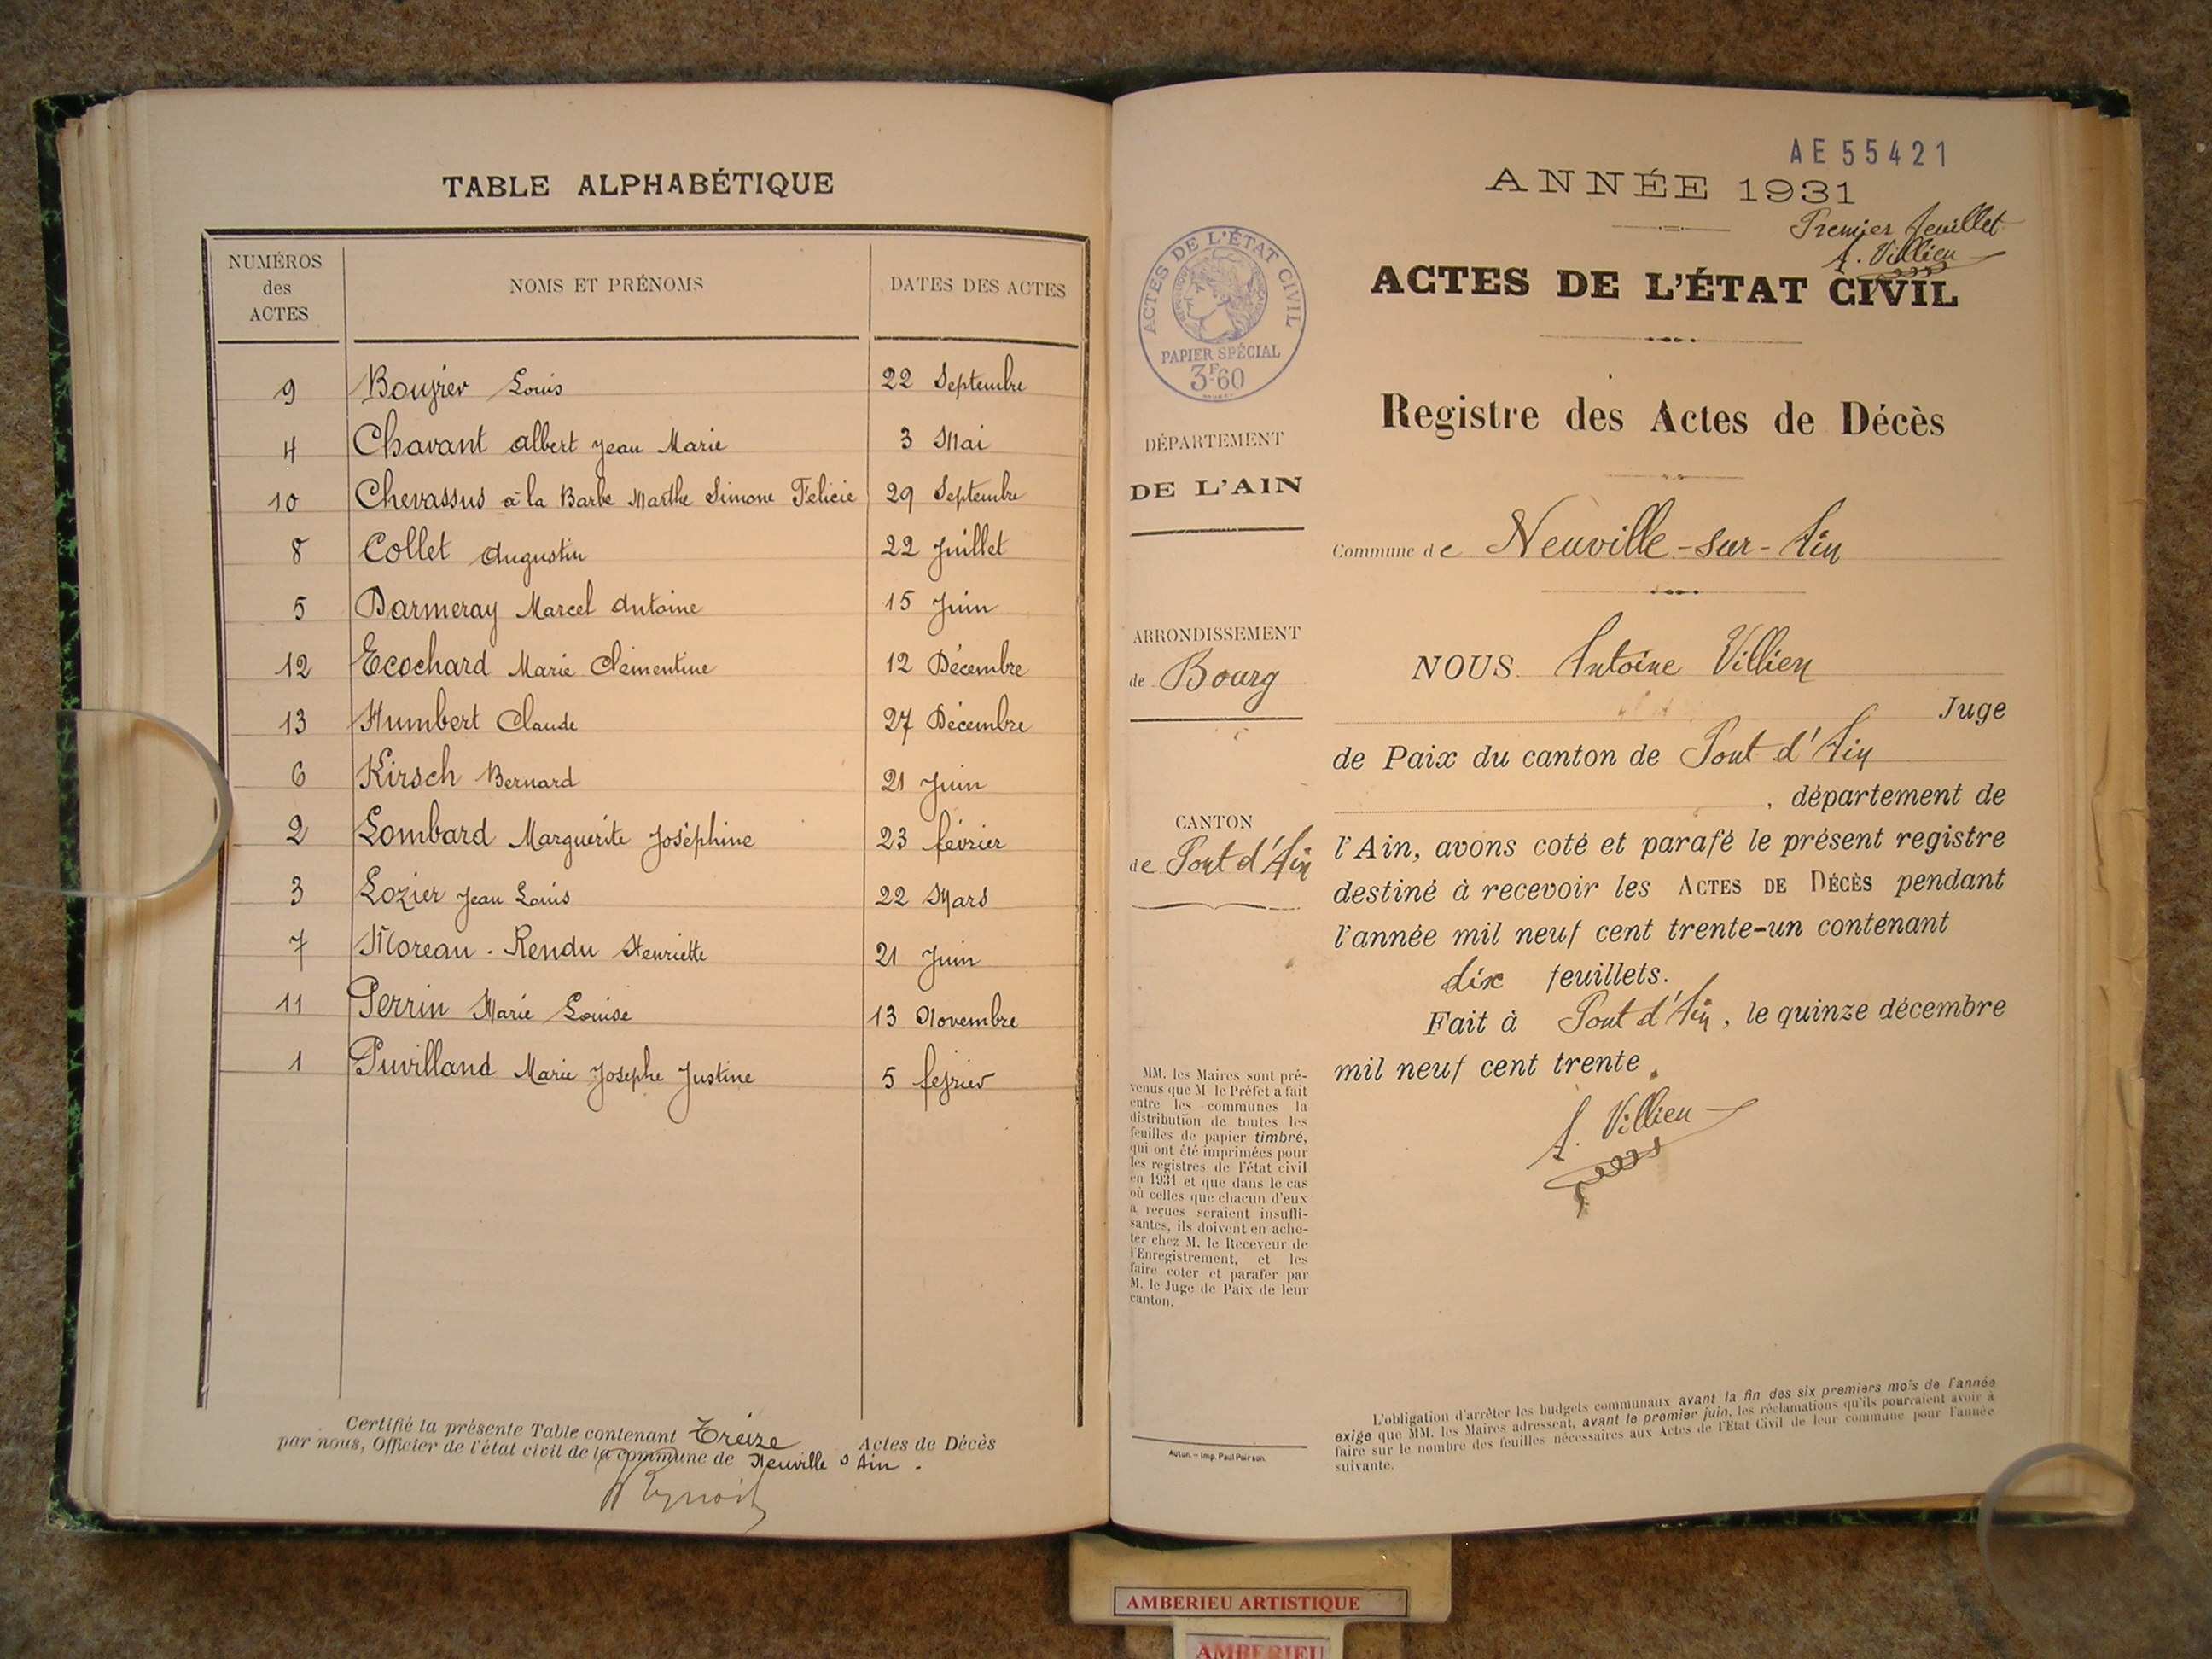 TABLE ALPHABÉTIQUE
NUMÉROS des ACTES NOMS ET PRÉNOMS DATES DES ACTES
9 Bouvier Louis 22 Septembre
4 Chavant Albert Jean Marie 3 Mai
10 Chevassus à la Barbe Marthe Simone Félicie 29 Septembre
8 Collet Augustin 22 Juillet
5 Darmeray Marcel Antoine 15 Juin
12 Ecochard Marie Clémentine 12 Décembre
13 Humbert Claude 27 Décembre
6 Kirsch Bernard 21 Juin
2 Lombard Marguerite Joséphine 23 février
3 Lozier Jean Louis 22 Mars
7 Moreau - Rendu Henriette 21 Juin
11 Perrin Marie Louise 13 Novembre
1 Puvilland Marie Josephe Justine 5 février
Certifié la présente Table contenant Treize Actes de Décès
par nous, Officier de l'état civil de la commune de Neuville s Ain .
AE55421
ANNÉE 1931
Premier feuillet
A. Villien
ACTES DE L'ÉTAT CIVIL
PAPIER SPÉCIAL
3F60
ACTES DE L'ÉTAT CIVIL
Registre des Actes de Décès
DÉPARTEMENT
DE L'AIN
Commune de Neuville-sur-Ain
ARRONDISSEMENT
de Bourg
CANTON
de Pont d'Ain
NOUS Antoine Villien
Juge
de Paix du canton de Pont d'Ain
, département de
l'Ain, avons coté et parafé le présent registre
destiné à recevoir les ACTES DE DÉCÈS pendant
l'année mil neuf cent trente-un contenant
dix feuillets.
Fait à Pont d'Ain, le quinze décembre
mil neuf cent trente.
A. Villien
MM. les Maires sont pré-
venus que M le Préfet a fait
entre les communes la
distribution de toutes les
feuilles de papier timbré,
qui ont été imprimées pour
les registres de l'état civil
en 1931 et que dans le cas
où celles que chacun d'eux
a reçues seraient insuffi-
santes, ils doivent en ache-
ter chez M. le Receveur de
l'Enregistrement, et les
faire coter et parafer par
M. le Juge de Paix de leur
canton.
Autun. — Imp. Paul Poirson.
L'obligation d'arrêter les budgets communaux avant la fin des six premiers mois de l'année
exige que MM. les Maires adressent, avant le premier juin, les réclamations qu'ils pourraient avoir à
faire sur le nombre des feuilles nécessaires aux Actes de l'Etat Civil de leur commune pour l'année
suivante.
AMBERIEU ARTISTIQUE
AMBERIEU